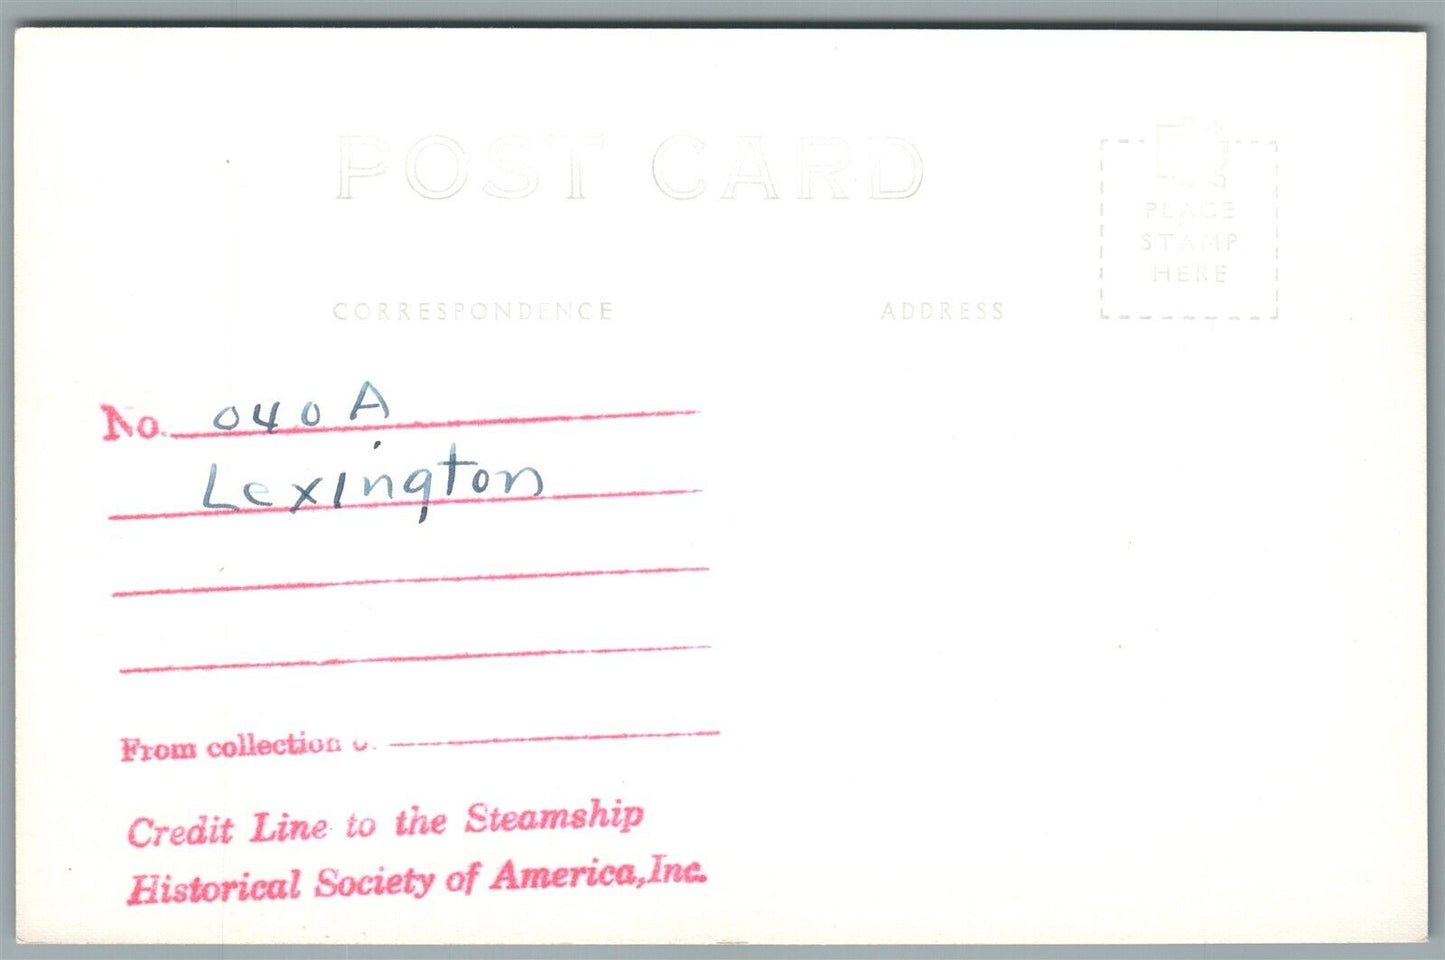 POST CARD
PLACE
STAMP
HERE
CORRESPONDENCE ADDRESS
No. 040 A
Lexington
From collection
Credit Line to the Steamship
Historical Society of America, Inc.